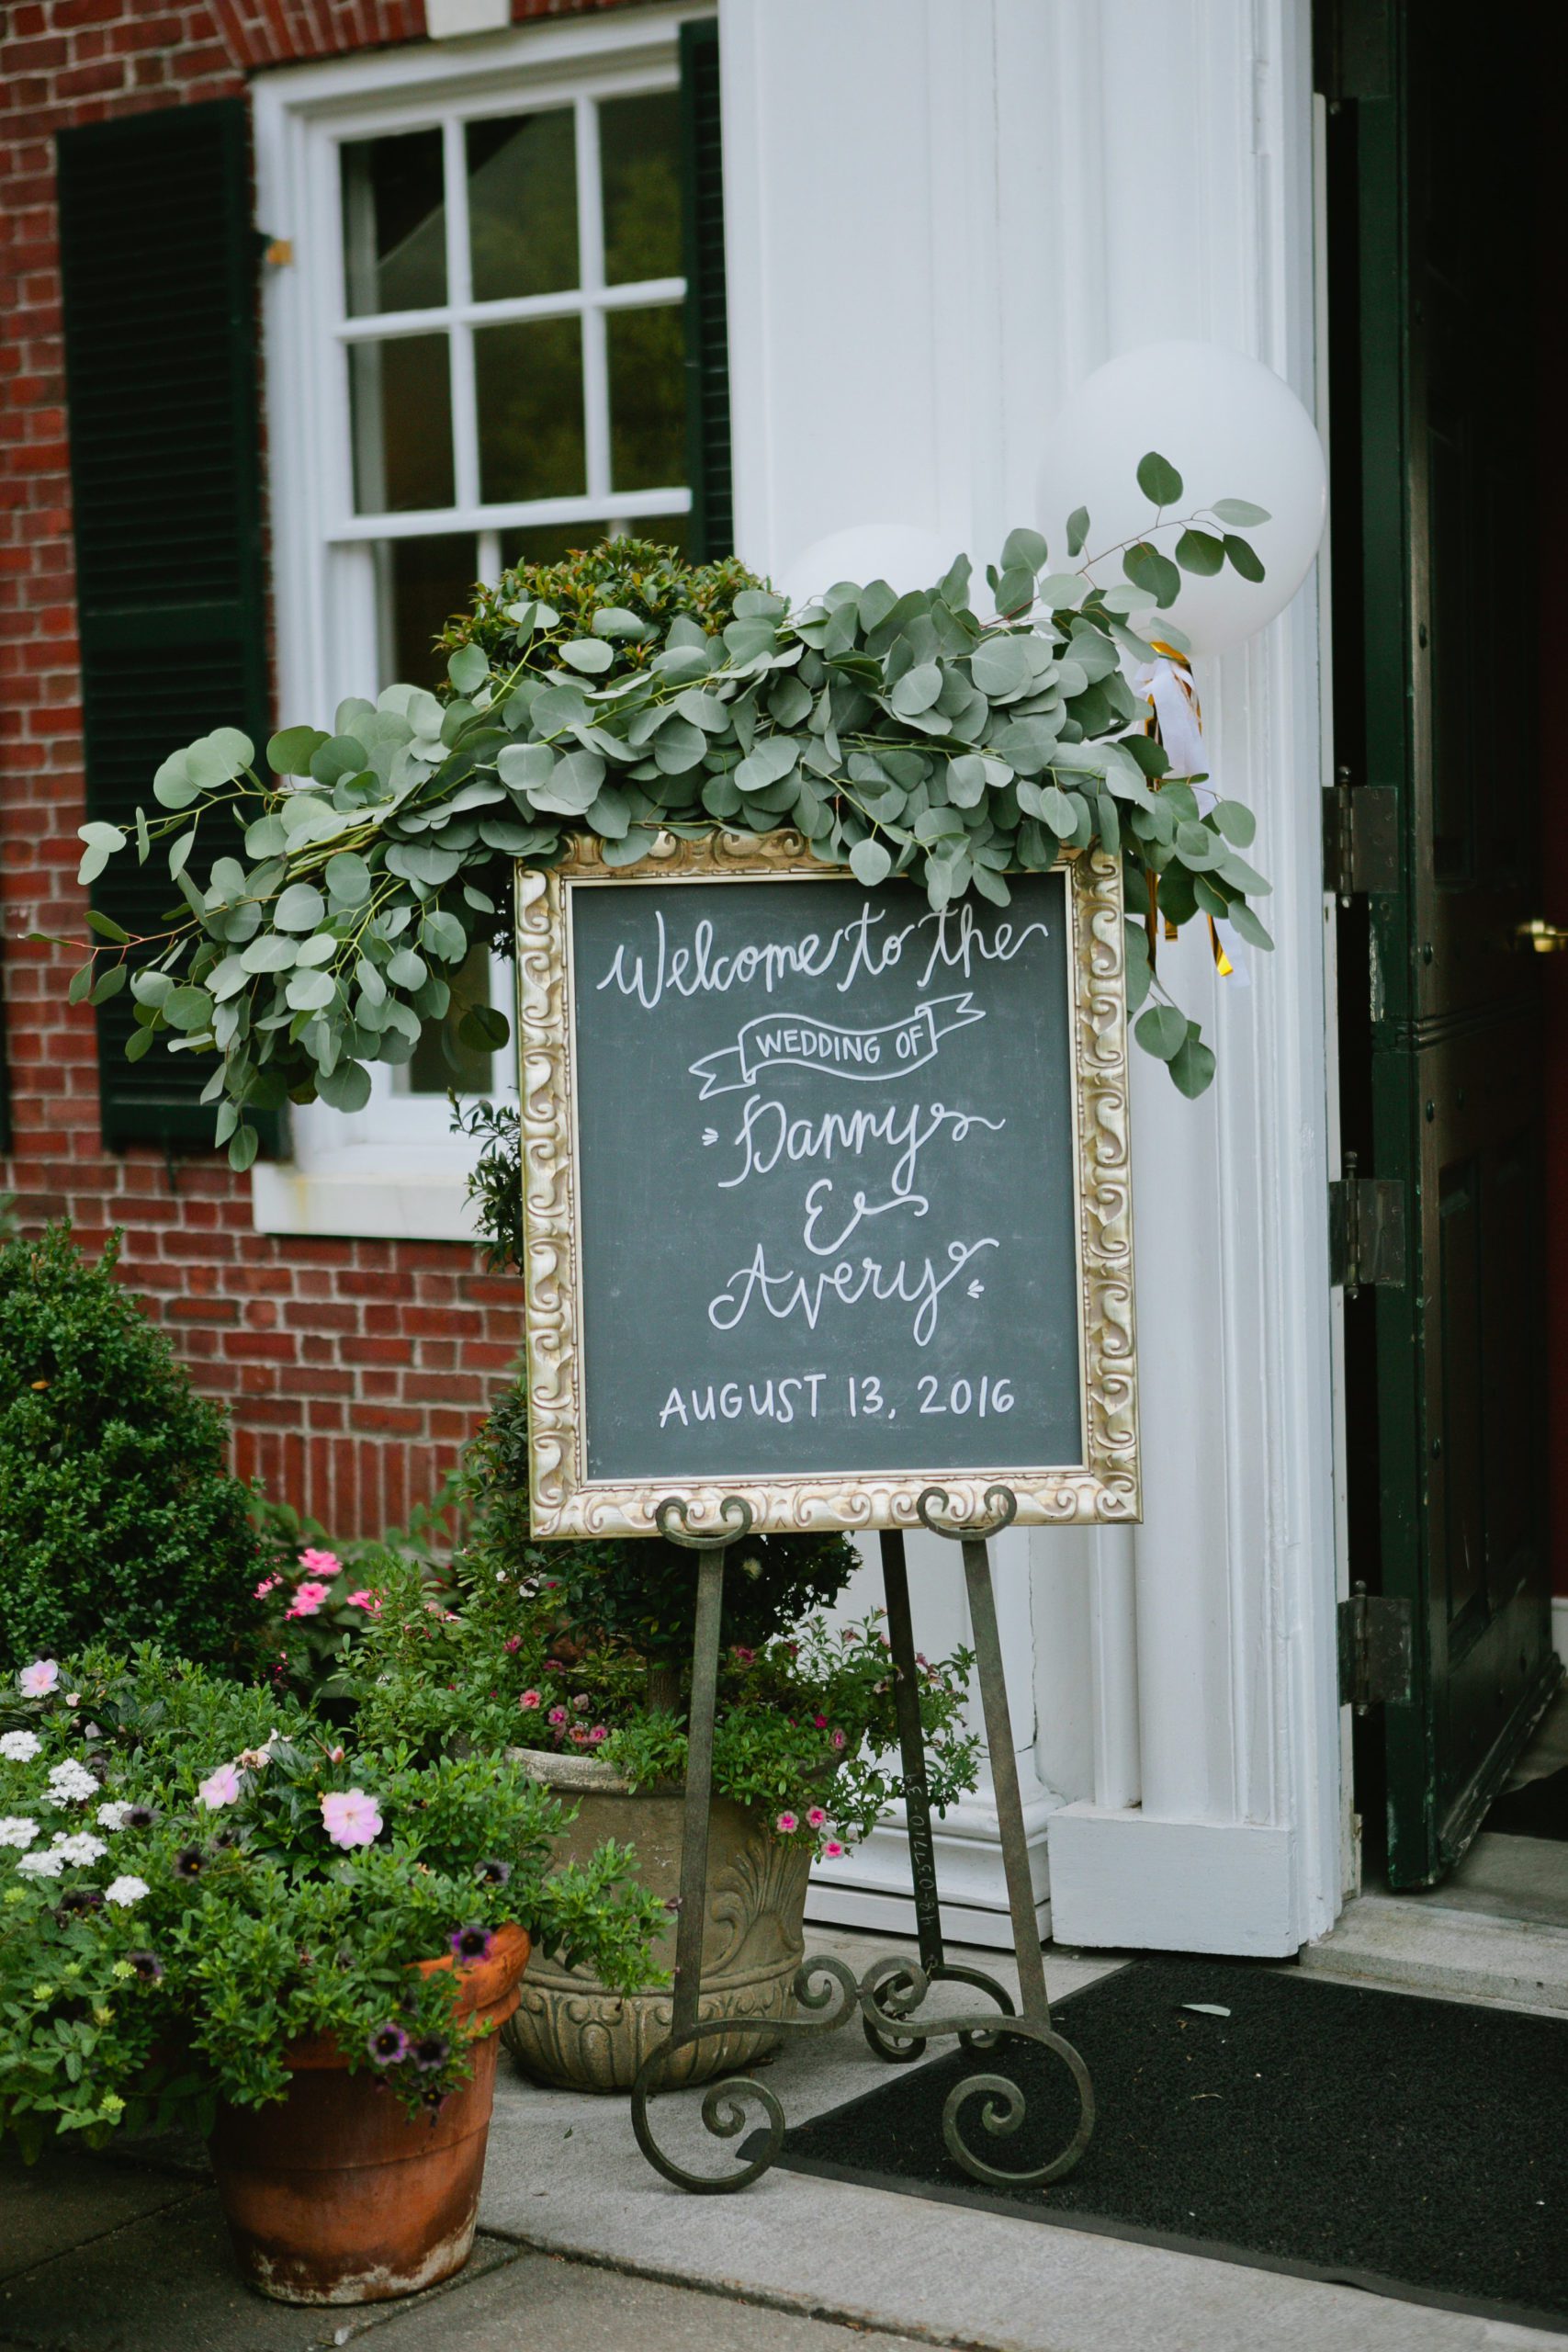 Welcome to the
WEDDING OF
Danny
&
Avery
AUGUST 13, 2016